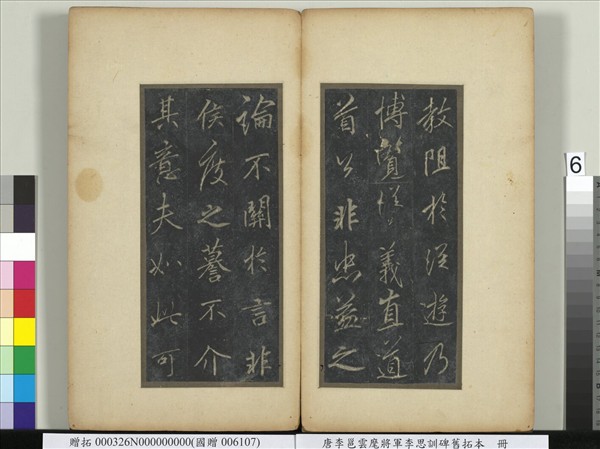 教阻於從遊乃
博覽義直道
首公非忠益之
論不關於言非
侯度之謩不介
其意夫如此可
6
贈拓 000326N000000000(國贈 006107)
唐李邕雲麾將軍李思訓碑舊拓本 冊